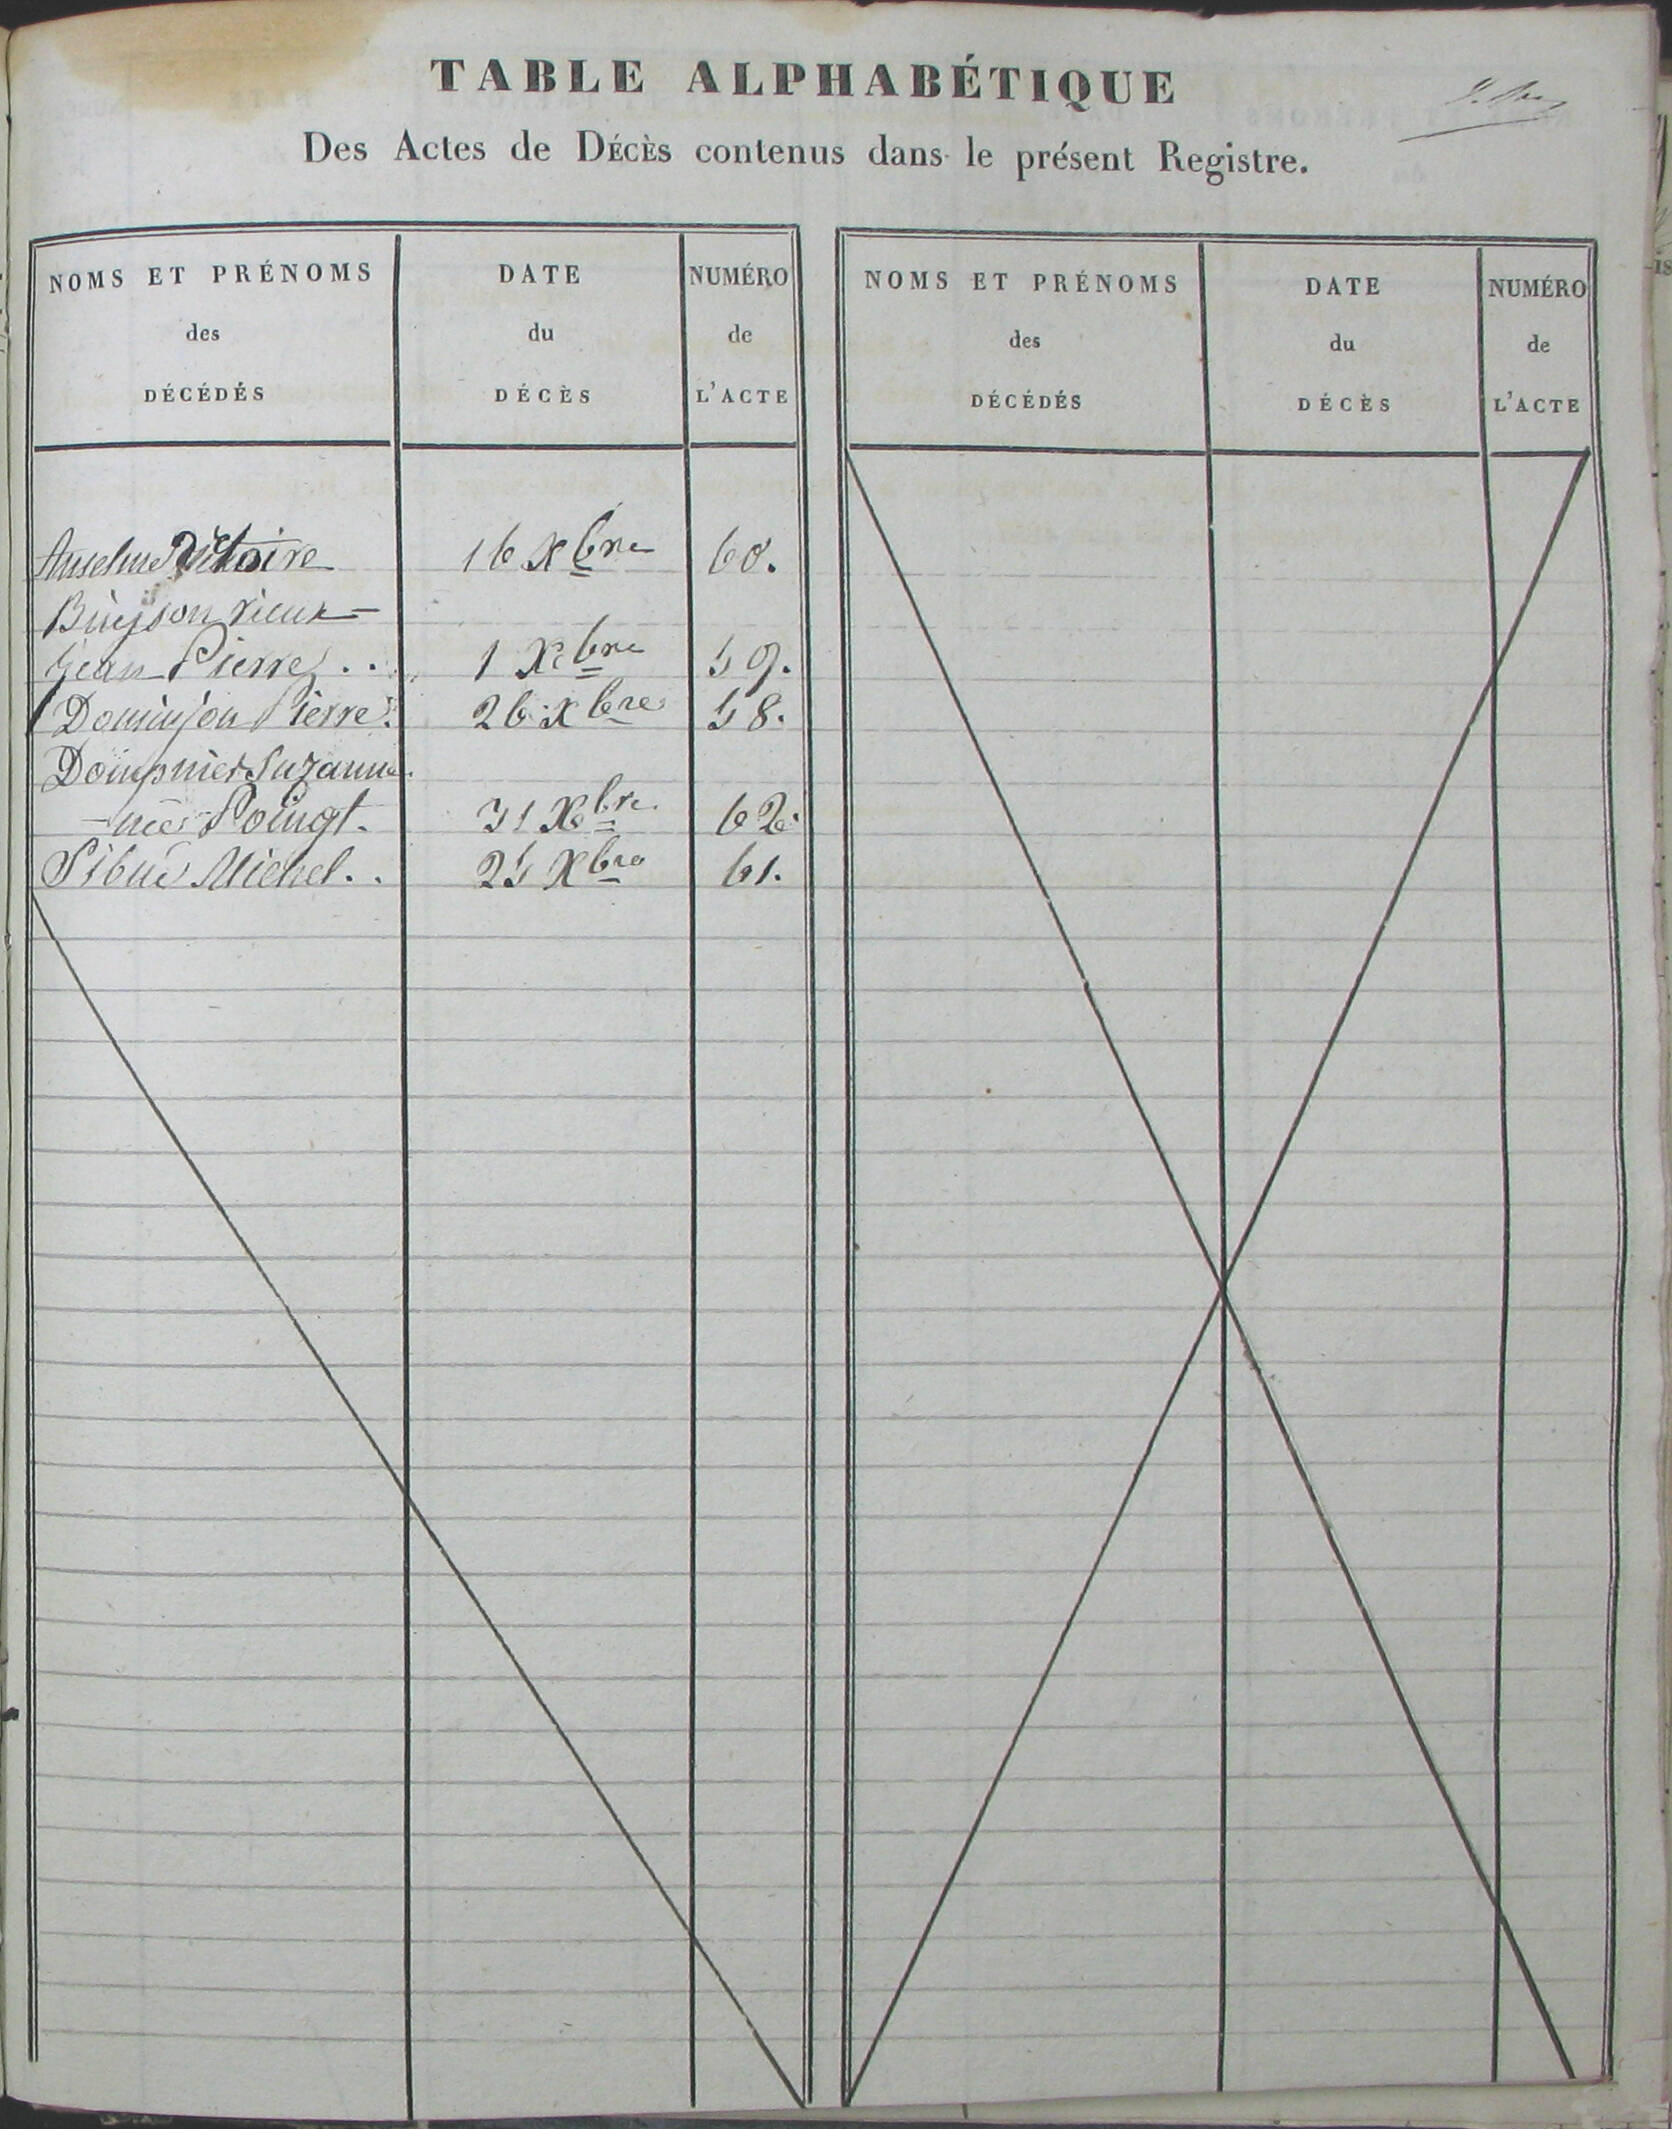 TABLE ALPHABÉTIQUE
Des Actes de DÉCÈS contenus dans le présent Registre.
NOMS ET PRÉNOMS
des
DÉCÉDÉS
DATE
du
DÉCÈS
NUMÉRO
de
L'ACTE
NOMS ET PRÉNOMS
des
DÉCÉDÉS
DATE
du
DÉCÈS
NUMÉRO
de
L'ACTE
Anselme Victoire 16 Xbre 60.
Buisson rieux
Jean Pierre . . 1 Xbre 59.
Dominjon Pierre. 26 Xbre 58.
Dompnier Suzanne
née Poingt. 31 Xbre. 62.
Sibué Michel. . 25 Xbre 61.